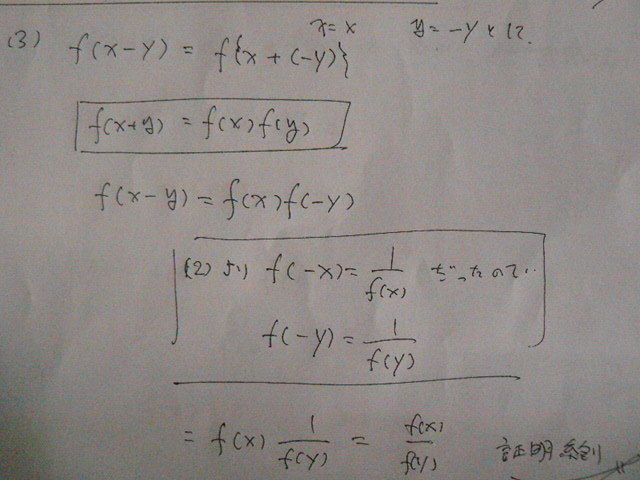 x=x y=-yとに
(3) f(x-y) = f{x+(-y)}
f(x+y) = f(x)f(y)
f(x-y) = f(x)f(-y)
(2)より f(-x) = 1/f(x) だったので..
f(-y) = 1/f(y)
= f(x) 1/f(y) = f(x)/f(y) 証明終り